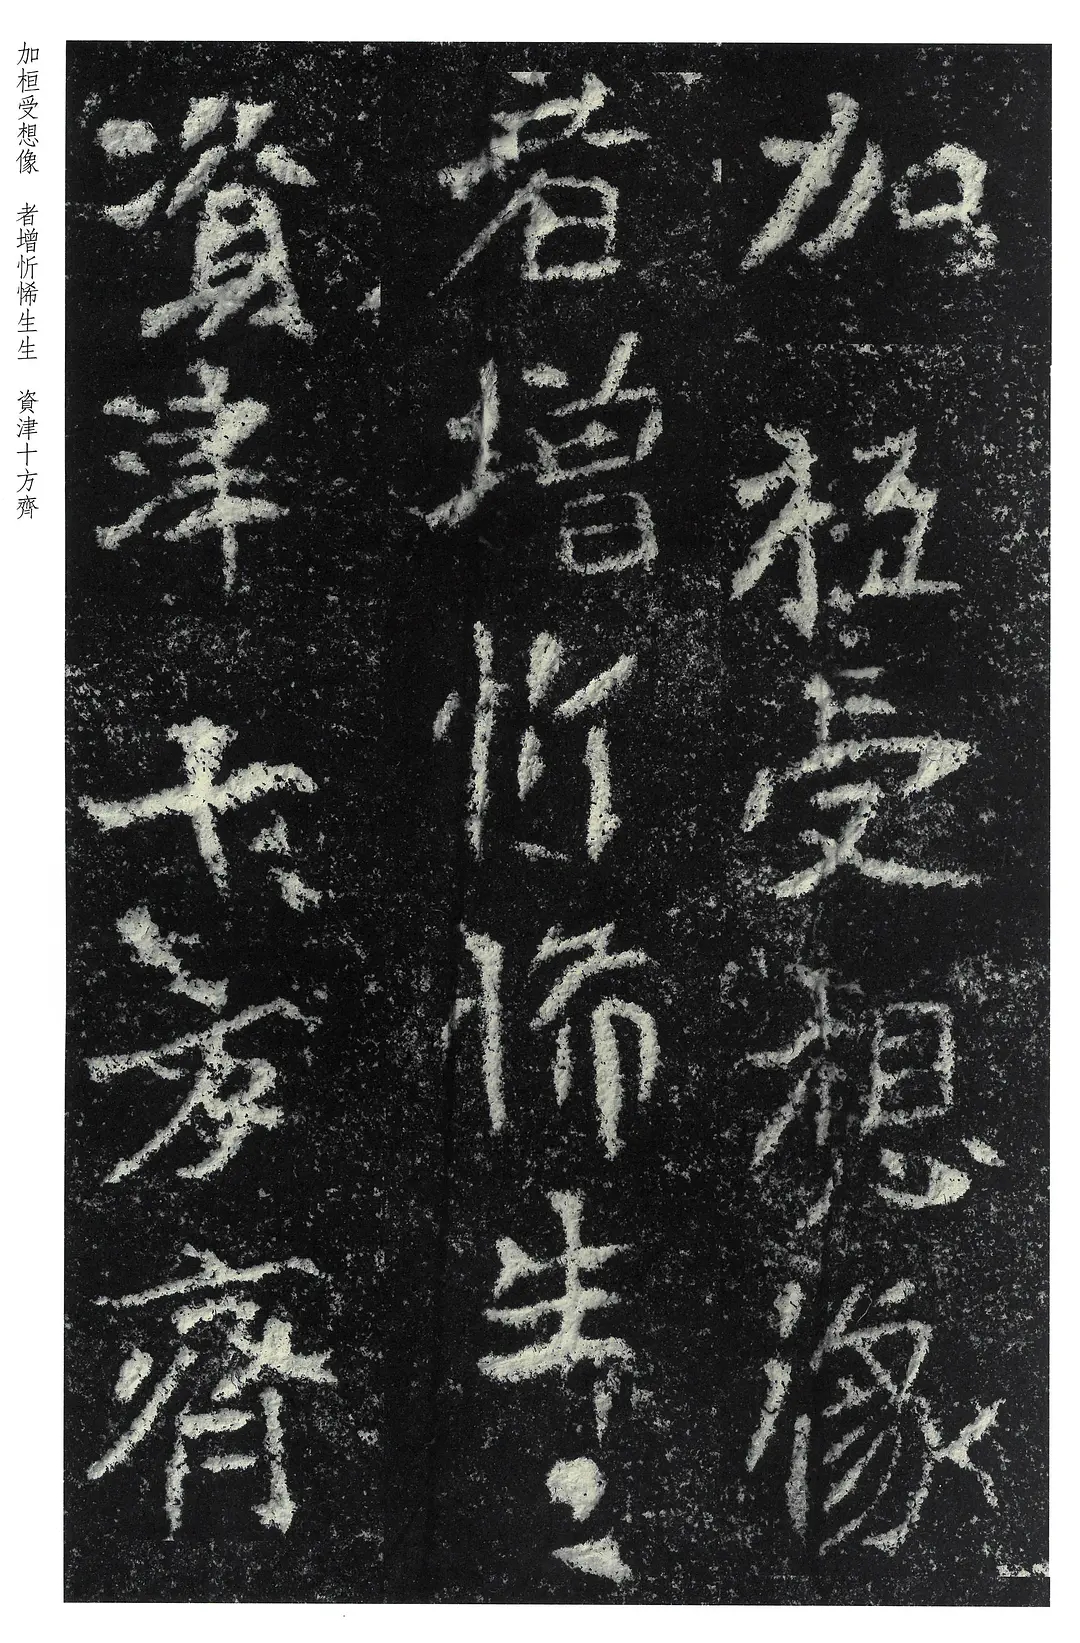 加桓受想像
者增忻悕生〻
資津十方齊
加桓受想像　者增忻悕生生　資津十方齊